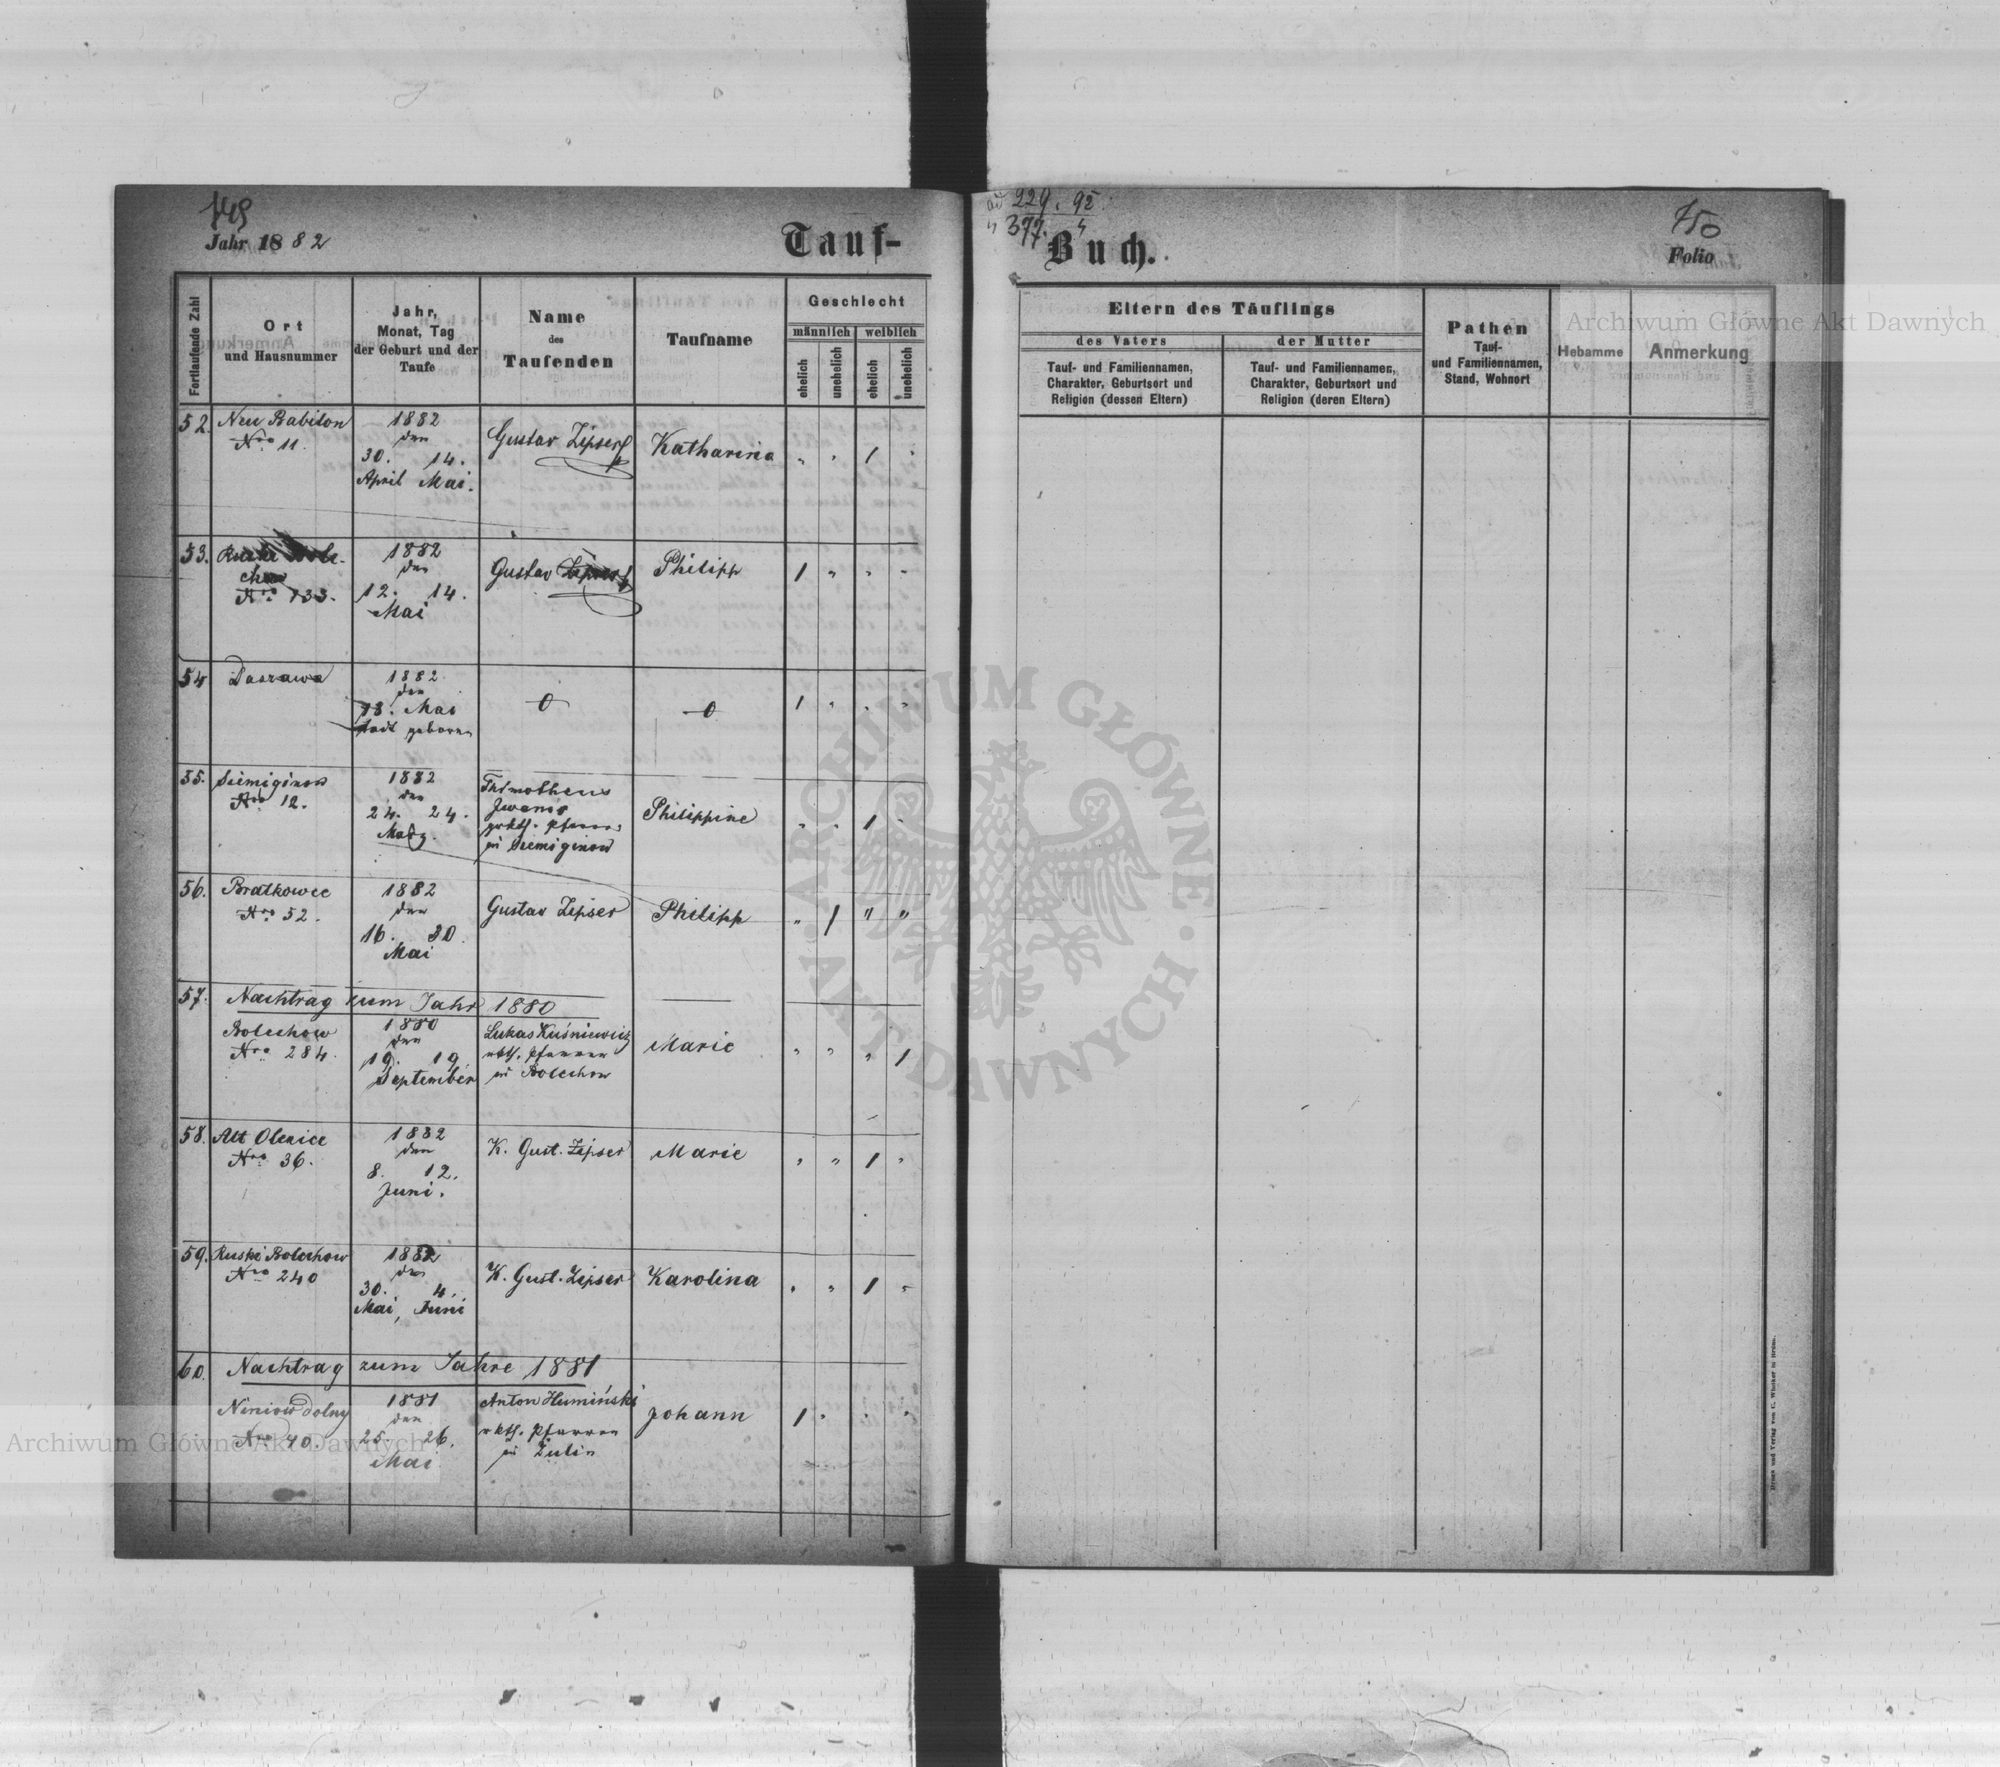 149
Jahr 1882
Tauf-
Fortlaufende Zahl
Ort
und Hausnummer
Jahr,
Monat, Tag
der Geburt und der
Taufe
Name
des
Taufenden
Taufname
Geschlecht
männlich
weiblich
ehelich
unehelich
ehelich
unehelich
52. Neu Babilon
Nro 11.
1882
den
30. 14.
April Mai.
Gustav Zipser
Katharina
" " 1 "
53.
Nro 133.
1882
den
12. 14.
Mai
Gustav Zipser
Philipp
1 " " "
54
1882
den
18. Mai
todt geboren
1 " " "
55. Siemiginow
Nro 12.
1882
den
24. 24.
März.
Thimotheus
gr kth. Pfarrer
in Siemiginow
Philippine
" " 1 "
56. Bratkowce
Nro 52.
1882
den
16. 20.
Mai
Gustav Zipser
Philipp
" 1 " "
57. Nachtrag zum Jahr 1880
Bolechow
Nro 284.
1880
den
19. 19.
September
Lukas Kuśniewicz
rkth. Pfarrer
in Bolechow
Marie
" " " 1
58. Alt Olexice
Nro 36.
1882
den
8. 12.
Juni.
K. Gust. Zipser
Marie
" " 1 "
59. Ruski Bolechow
Nro 240
1882
den
30. 4.
Mai, Juni
K. Gust. Zipser
Karolina
" " 1 "
60. Nachtrag zum Jahre 1881
Niniow dolny
Nro 40.
1881
den
25. 26.
Mai
Anton Humiński
rkth. Pfarrer
in Zulin
Johann
1 " " "
ad 229. 92
" 377. "
Buch.
150
Folio
Eltern des Täuflings
des Vaters
der Mutter
Tauf- und Familiennamen,
Charakter, Geburtsort und
Religion (dessen Eltern)
Tauf- und Familiennamen,
Charakter, Geburtsort und
Religion (deren Eltern)
Pathen
Tauf-
und Familiennamen,
Stand, Wohnort
Hebamme
Anmerkung
Archiwum Główne Akt Dawnych
ARCHIWUM GŁÓWNE · AKT DAWNYCH ·
Archiwum Główne Akt Dawnych